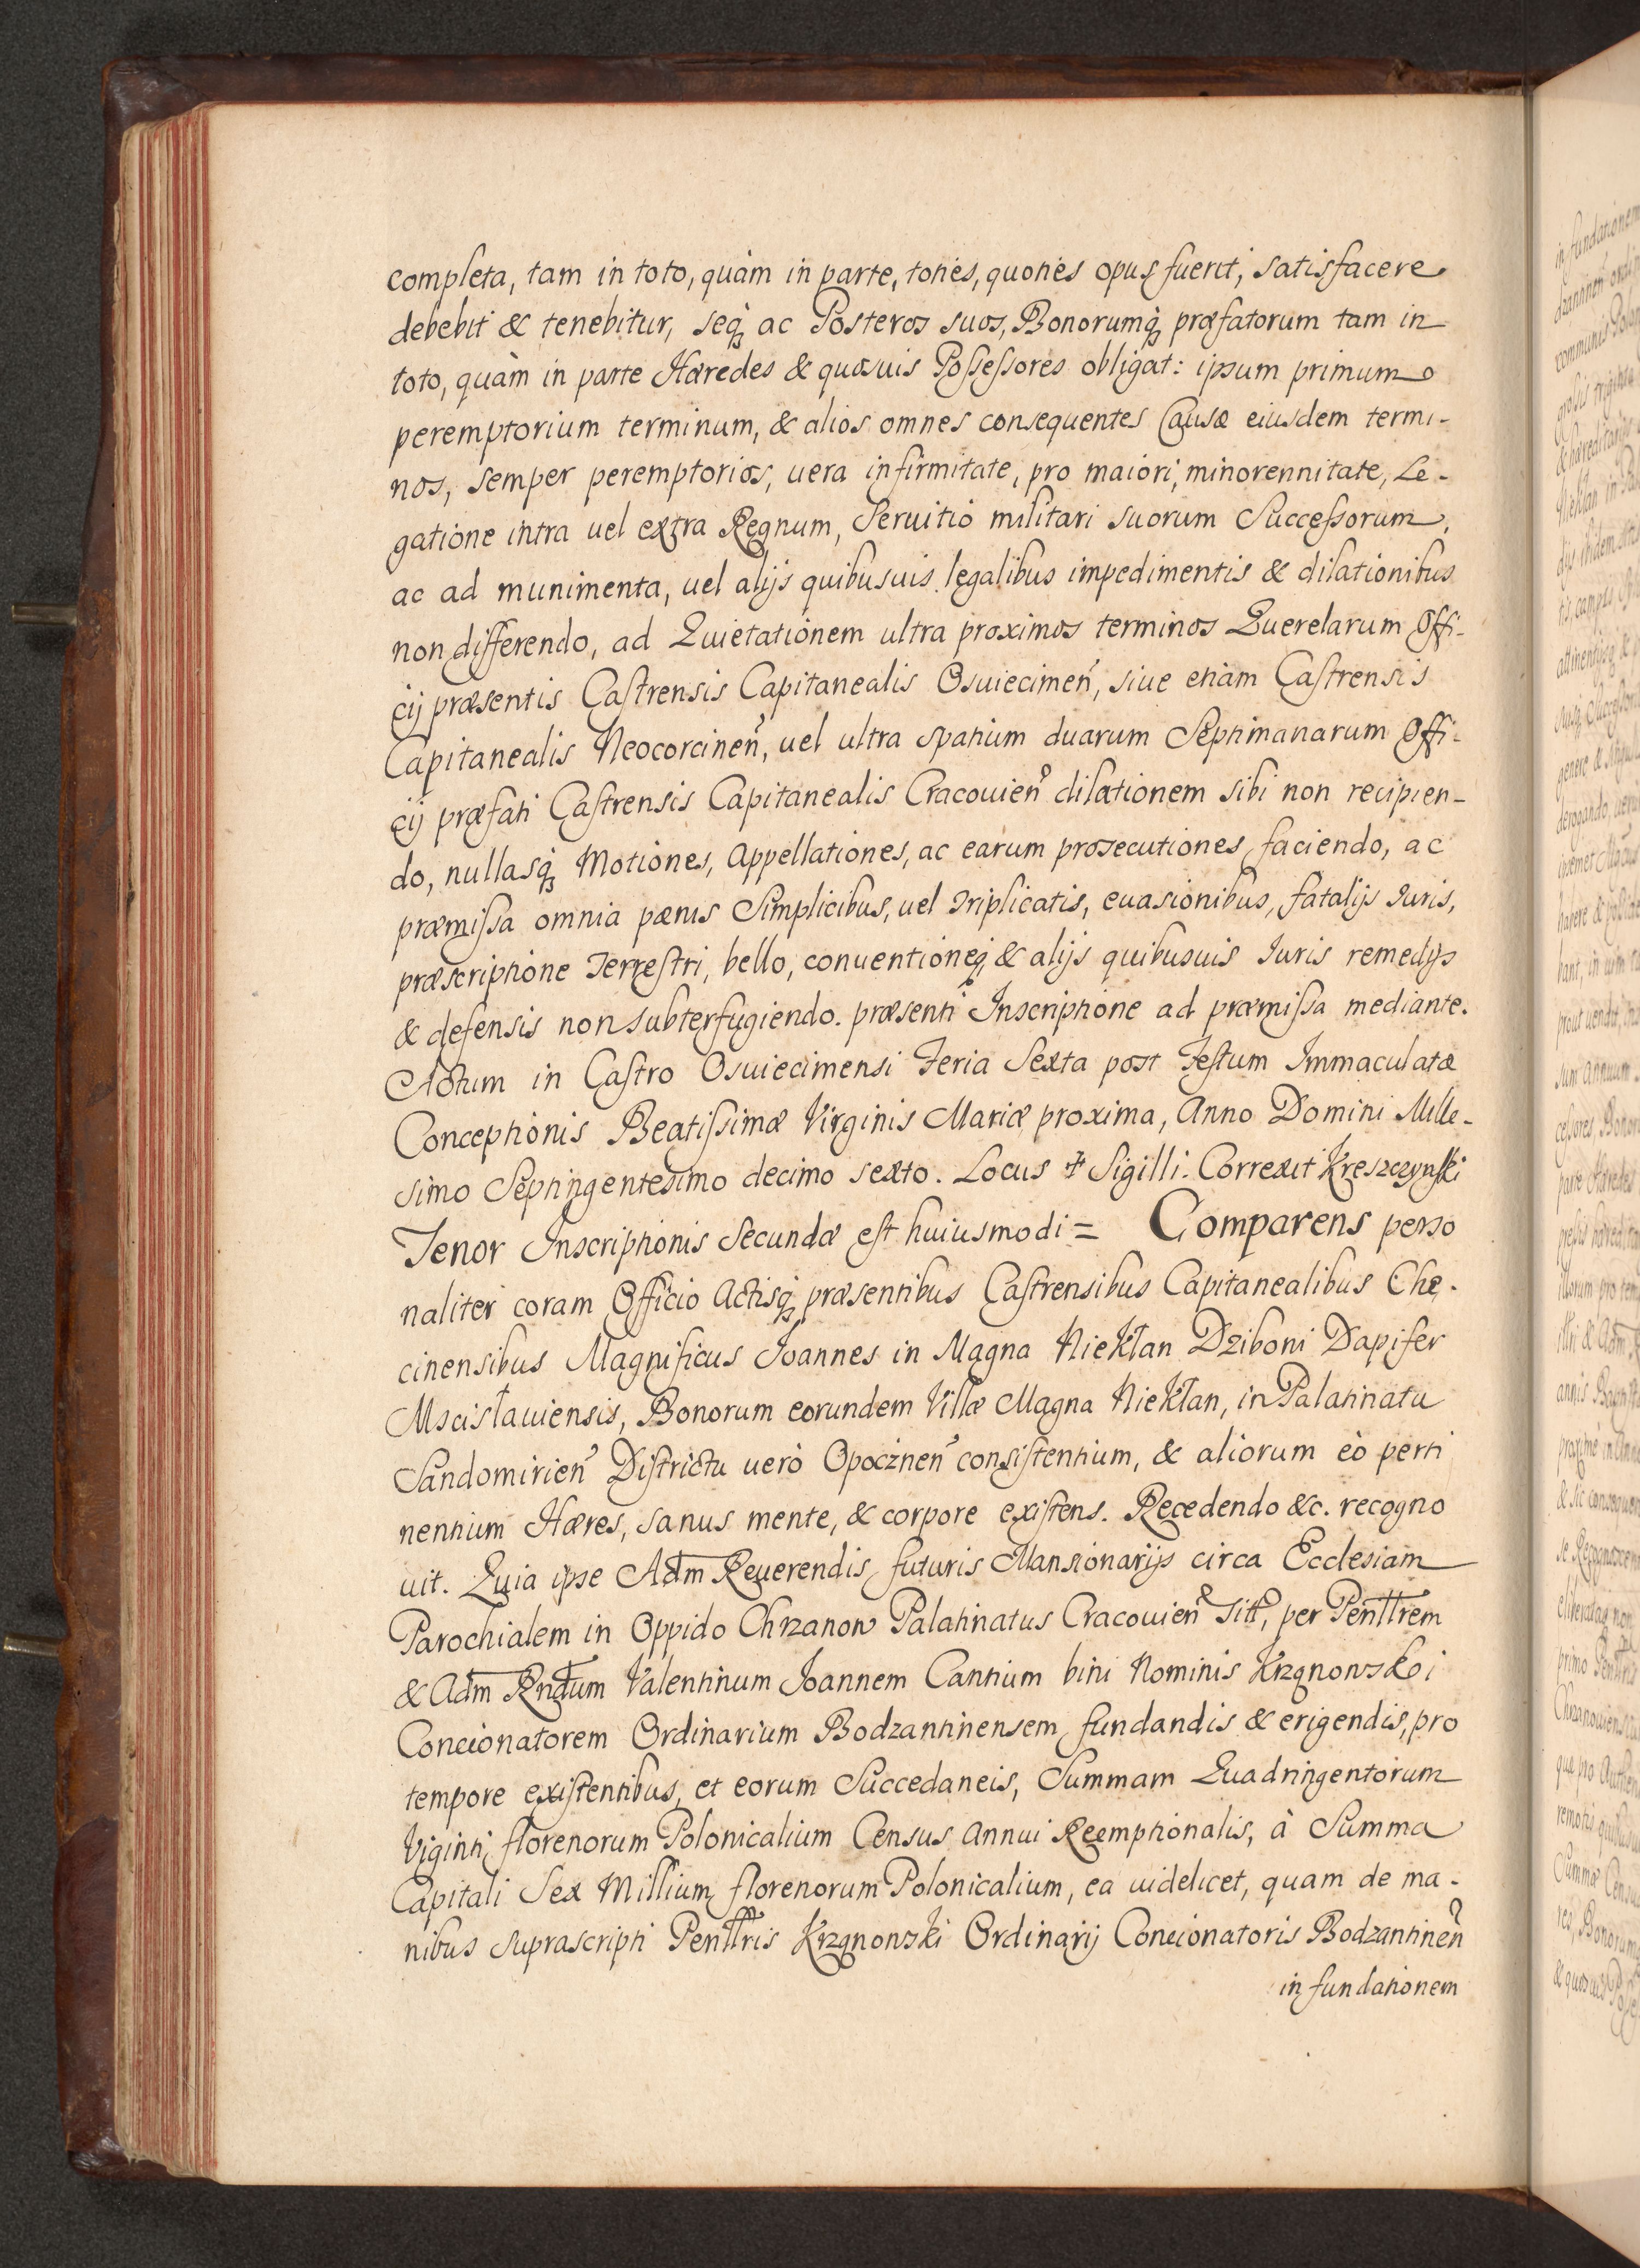 completa, tam in toto, quàm in parte, toties, quoties opus fuerit, satisfacere
debebit & tenebitur, seq́; ac Posteros suos, Bonorumq́; præfatorum tam in
toto, quàm in parte Hæredes & quosuis Possessores obligat: ipsum primum
peremptorium terminum, & alios omnes consequentes Causæ eiusdem termi-
nos, semper peremptorios, uera infirmitate, pro maiori, minorennitate, Le-
gatione intra uel extra Regnum, Seruitio militari suorum Successorum,
ac ad munimenta, uel alijs quibusuis legalibus impedimentis & dilationibus
non differendo, ad Quietationem ultra proximos terminos Querelarum Offi-
cij præsentis Castrensis Capitanealis Osuiecimeń, siue etiam Castrensis
Capitanealis Neocorcineń, uel ultra spatium duarum Septimanarum Offi-
cij præfati Castrensis Capitanealis Cracouień dilationem sibi non recipien-
do, nullasq́; Motiones, Appellationes, ac earum prosecutiones faciendo, ac
præmissa omnia pænis Simplicibus, uel Triplicatis, euasionibus, fatalijs Iuris,
præscriptione Terrestri, bello, conuentioneq; & alijs quibusuis Iuris remedijs
& defensis non subterfugiendo. præsenti Inscriptione ad præmissa mediante.
Actum in Castro Osuiecimensi Feria Sexta post Festum Immaculatæ
Conceptionis Beatissimæ Virginis Mariæ proxima, Anno Domini Mille-
simo Septingentesimo decimo sexto. Locus ✝ Sigilli. Correxit Kreszczynski
Tenor Inscriptionis Secundæ est huiusmodi = Comparens perso
naliter coram Officio Actisq́; præsentibus Castrensibus Capitanealibus Chę-
cinensibus Magnificus Joannes in Magna Niekłan Dziboni Dapifer
Mscisłauiensis, Bonorum eorundem Villæ Magna Niekłan, in Palatinatu
Sandomirień Districtu uerò Opoczneń consistentium, & aliorum eò perti
nentium Hæres, sanus mente, & corpore existens. Recedendo &c. recogno
uit. Quia ipse Adm Reuerendis futuris Mansionarijs circa Ecclesiam
Parochialem in Oppido Chrzanow Palatinatus Cracouień sitt, per Penttrem
& Adm Rndum Valentinum Joannem Cantium bini Nominis Krzgnowski
Concionatorem Ordinarium Bodzantinensem fundandis & erigendis, pro
tempore existentibus, et eorum Succedaneis, Summam Quadringentorum
Viginti florenorum Polonicalium Census annui Reemptionalis, à Summa
Capitali Sex Millium florenorum Polonicalium, ea uidelicet, quam de ma-
nibus suprascripti Penttris Krzgnowski Ordinarij Concionatoris Bodzantineń
in fundationem